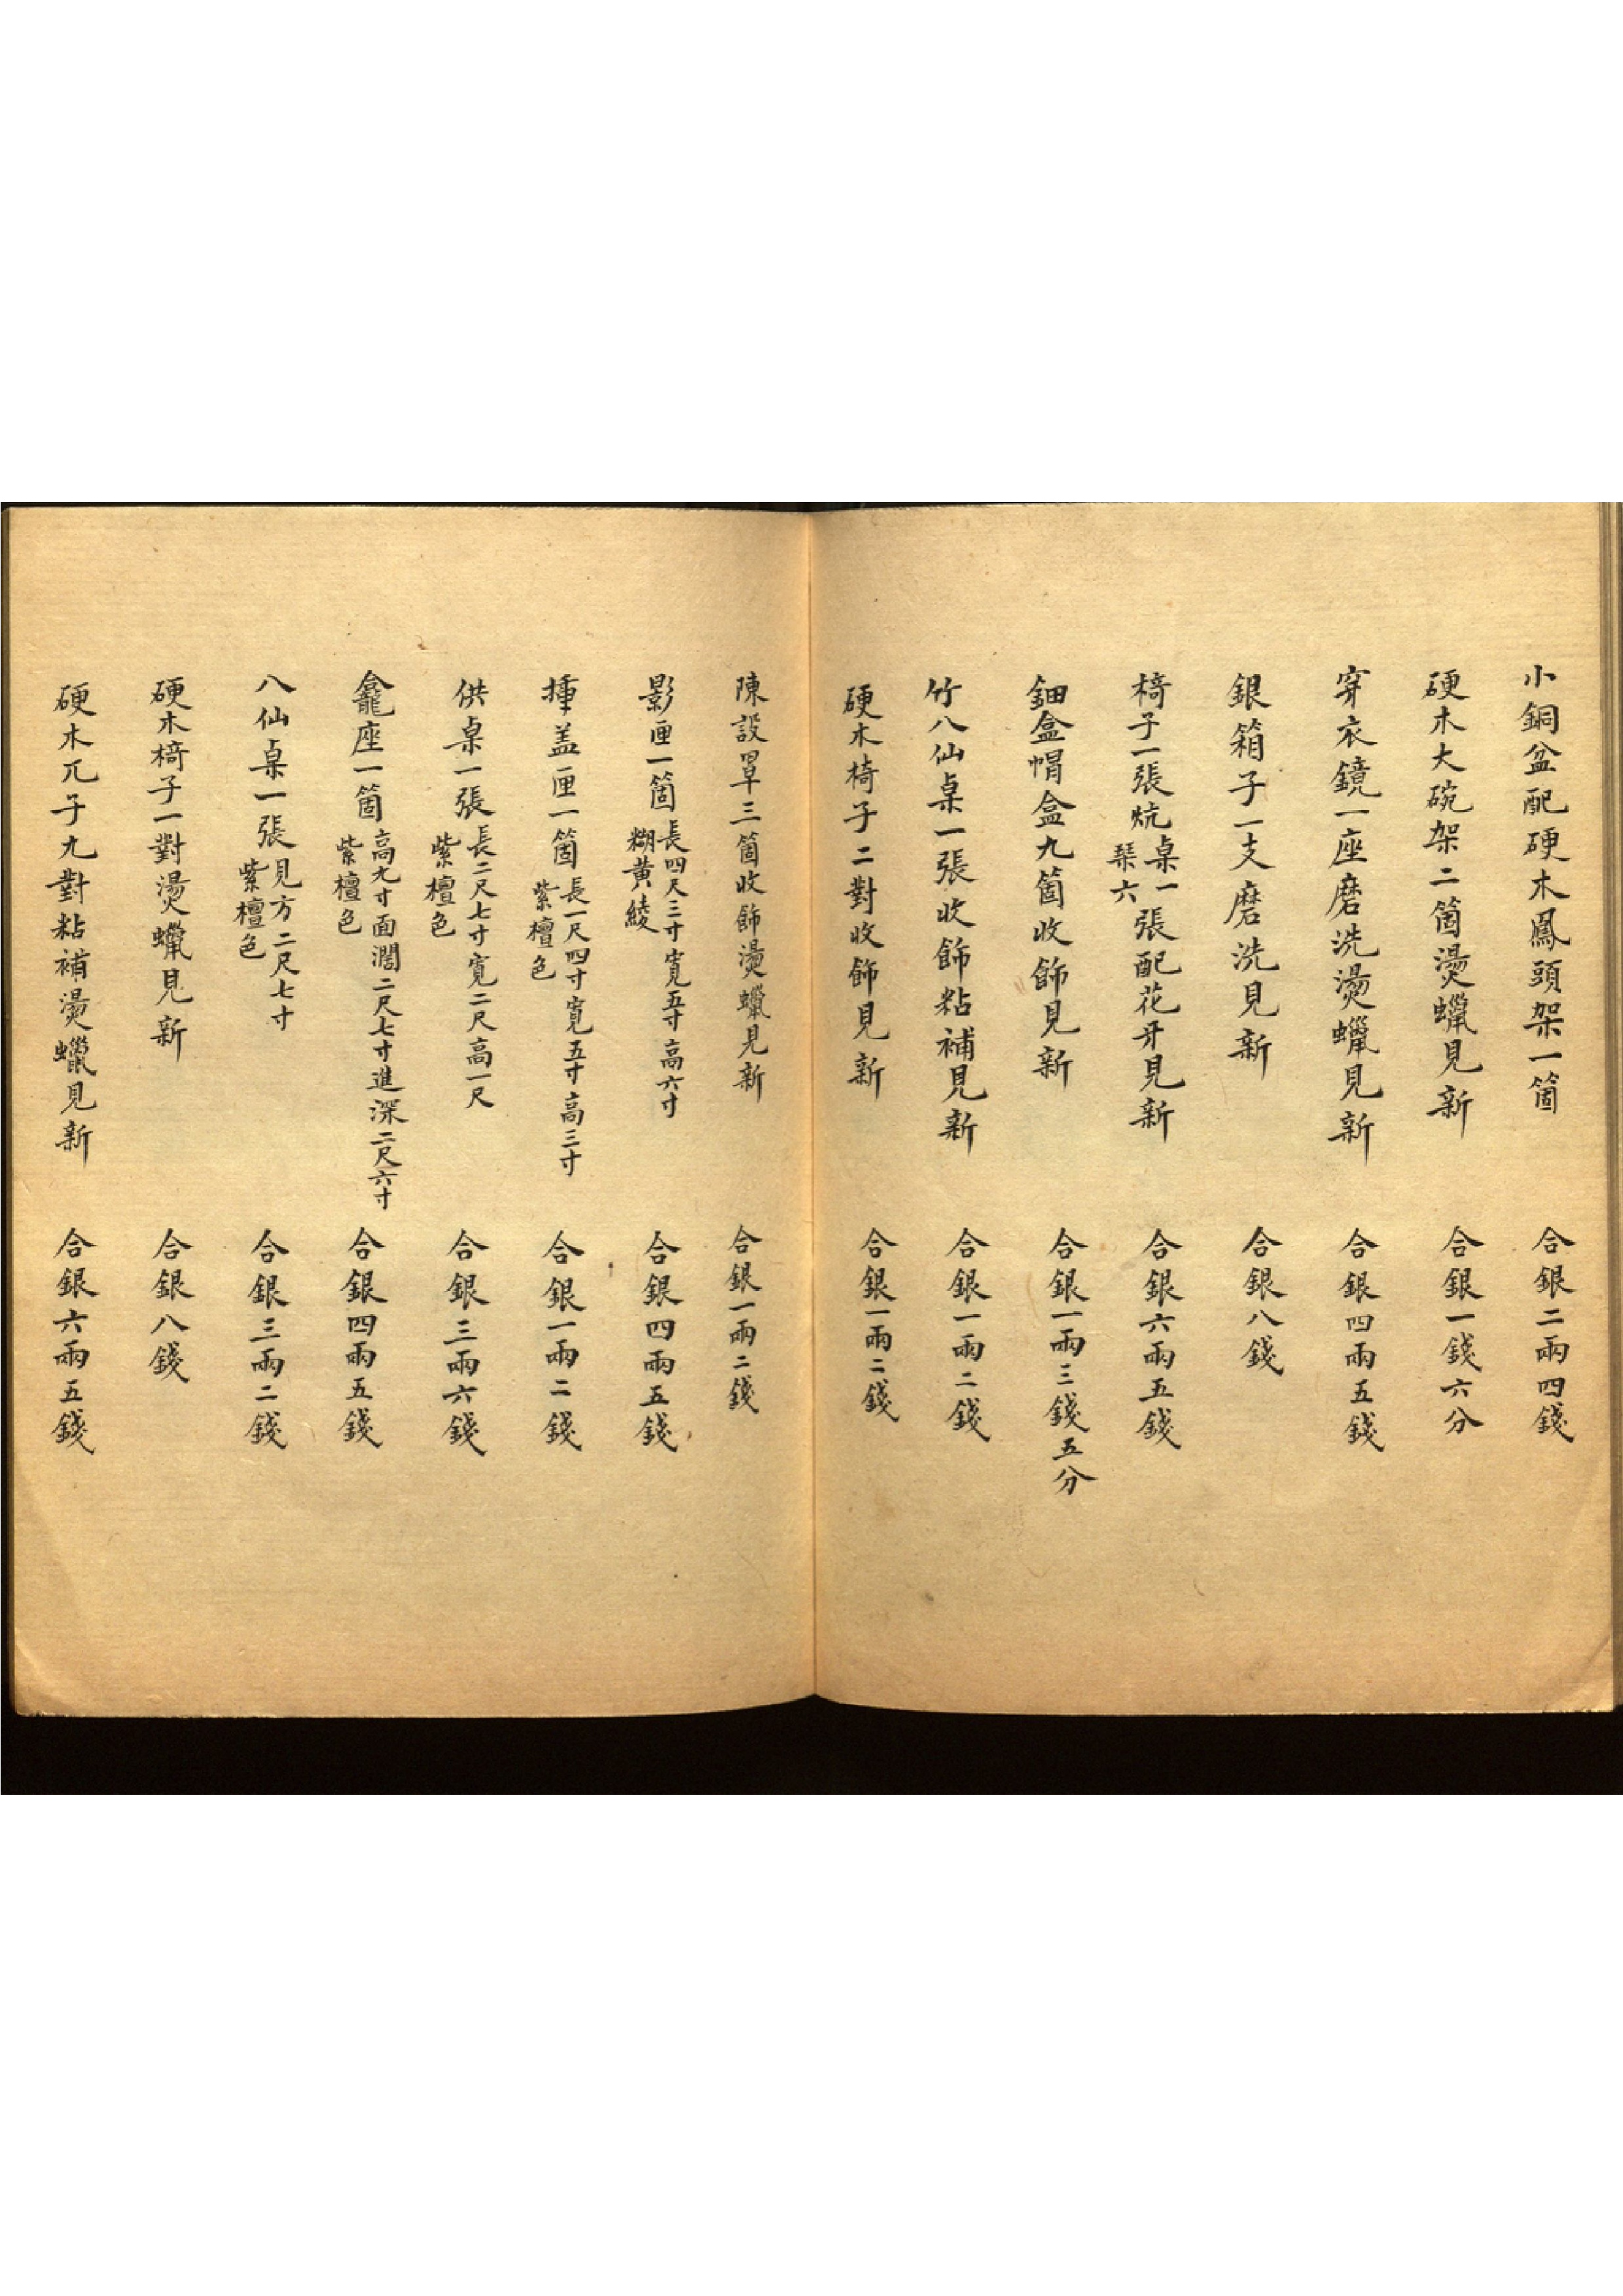 小銅盆配硬木鳳頭架一箇 合銀二兩四錢
硬木大碗架二箇燙蠟見新 合銀一錢六分
穿衣鏡一座磨洗燙蠟見新 合銀四兩五錢
銀箱子一支磨洗見新 合銀八錢
椅子一張炕桌一張琹六配花牙見新 合銀六兩五錢
鈿盒帽盒九箇收飾見新 合銀一兩三錢五分
竹八仙桌一張收飾粘補見新 合銀一兩二錢
硬木椅子二對收飾見新 合銀一兩二錢
陳設罩三箇收飾燙蠟見新 合銀一兩二錢
影匣一箇長四尺三寸寬五寸高六寸糊黄綾 合銀四兩五錢
揷盖匣一箇長一尺四寸寬五寸高三寸紫檀色 合銀一兩二錢
供桌一張長二尺七寸寬二尺高一尺紫檀色 合銀三兩六錢
龕座一箇高九寸面濶二尺七寸進深二尺六寸紫檀色 合銀四兩五錢
八仙桌一張見方二尺七寸紫檀色 合銀三兩二錢
硬木椅子一對燙蠟見新 合銀八錢
硬木兀子九對粘補燙蠟見新 合銀六兩五錢